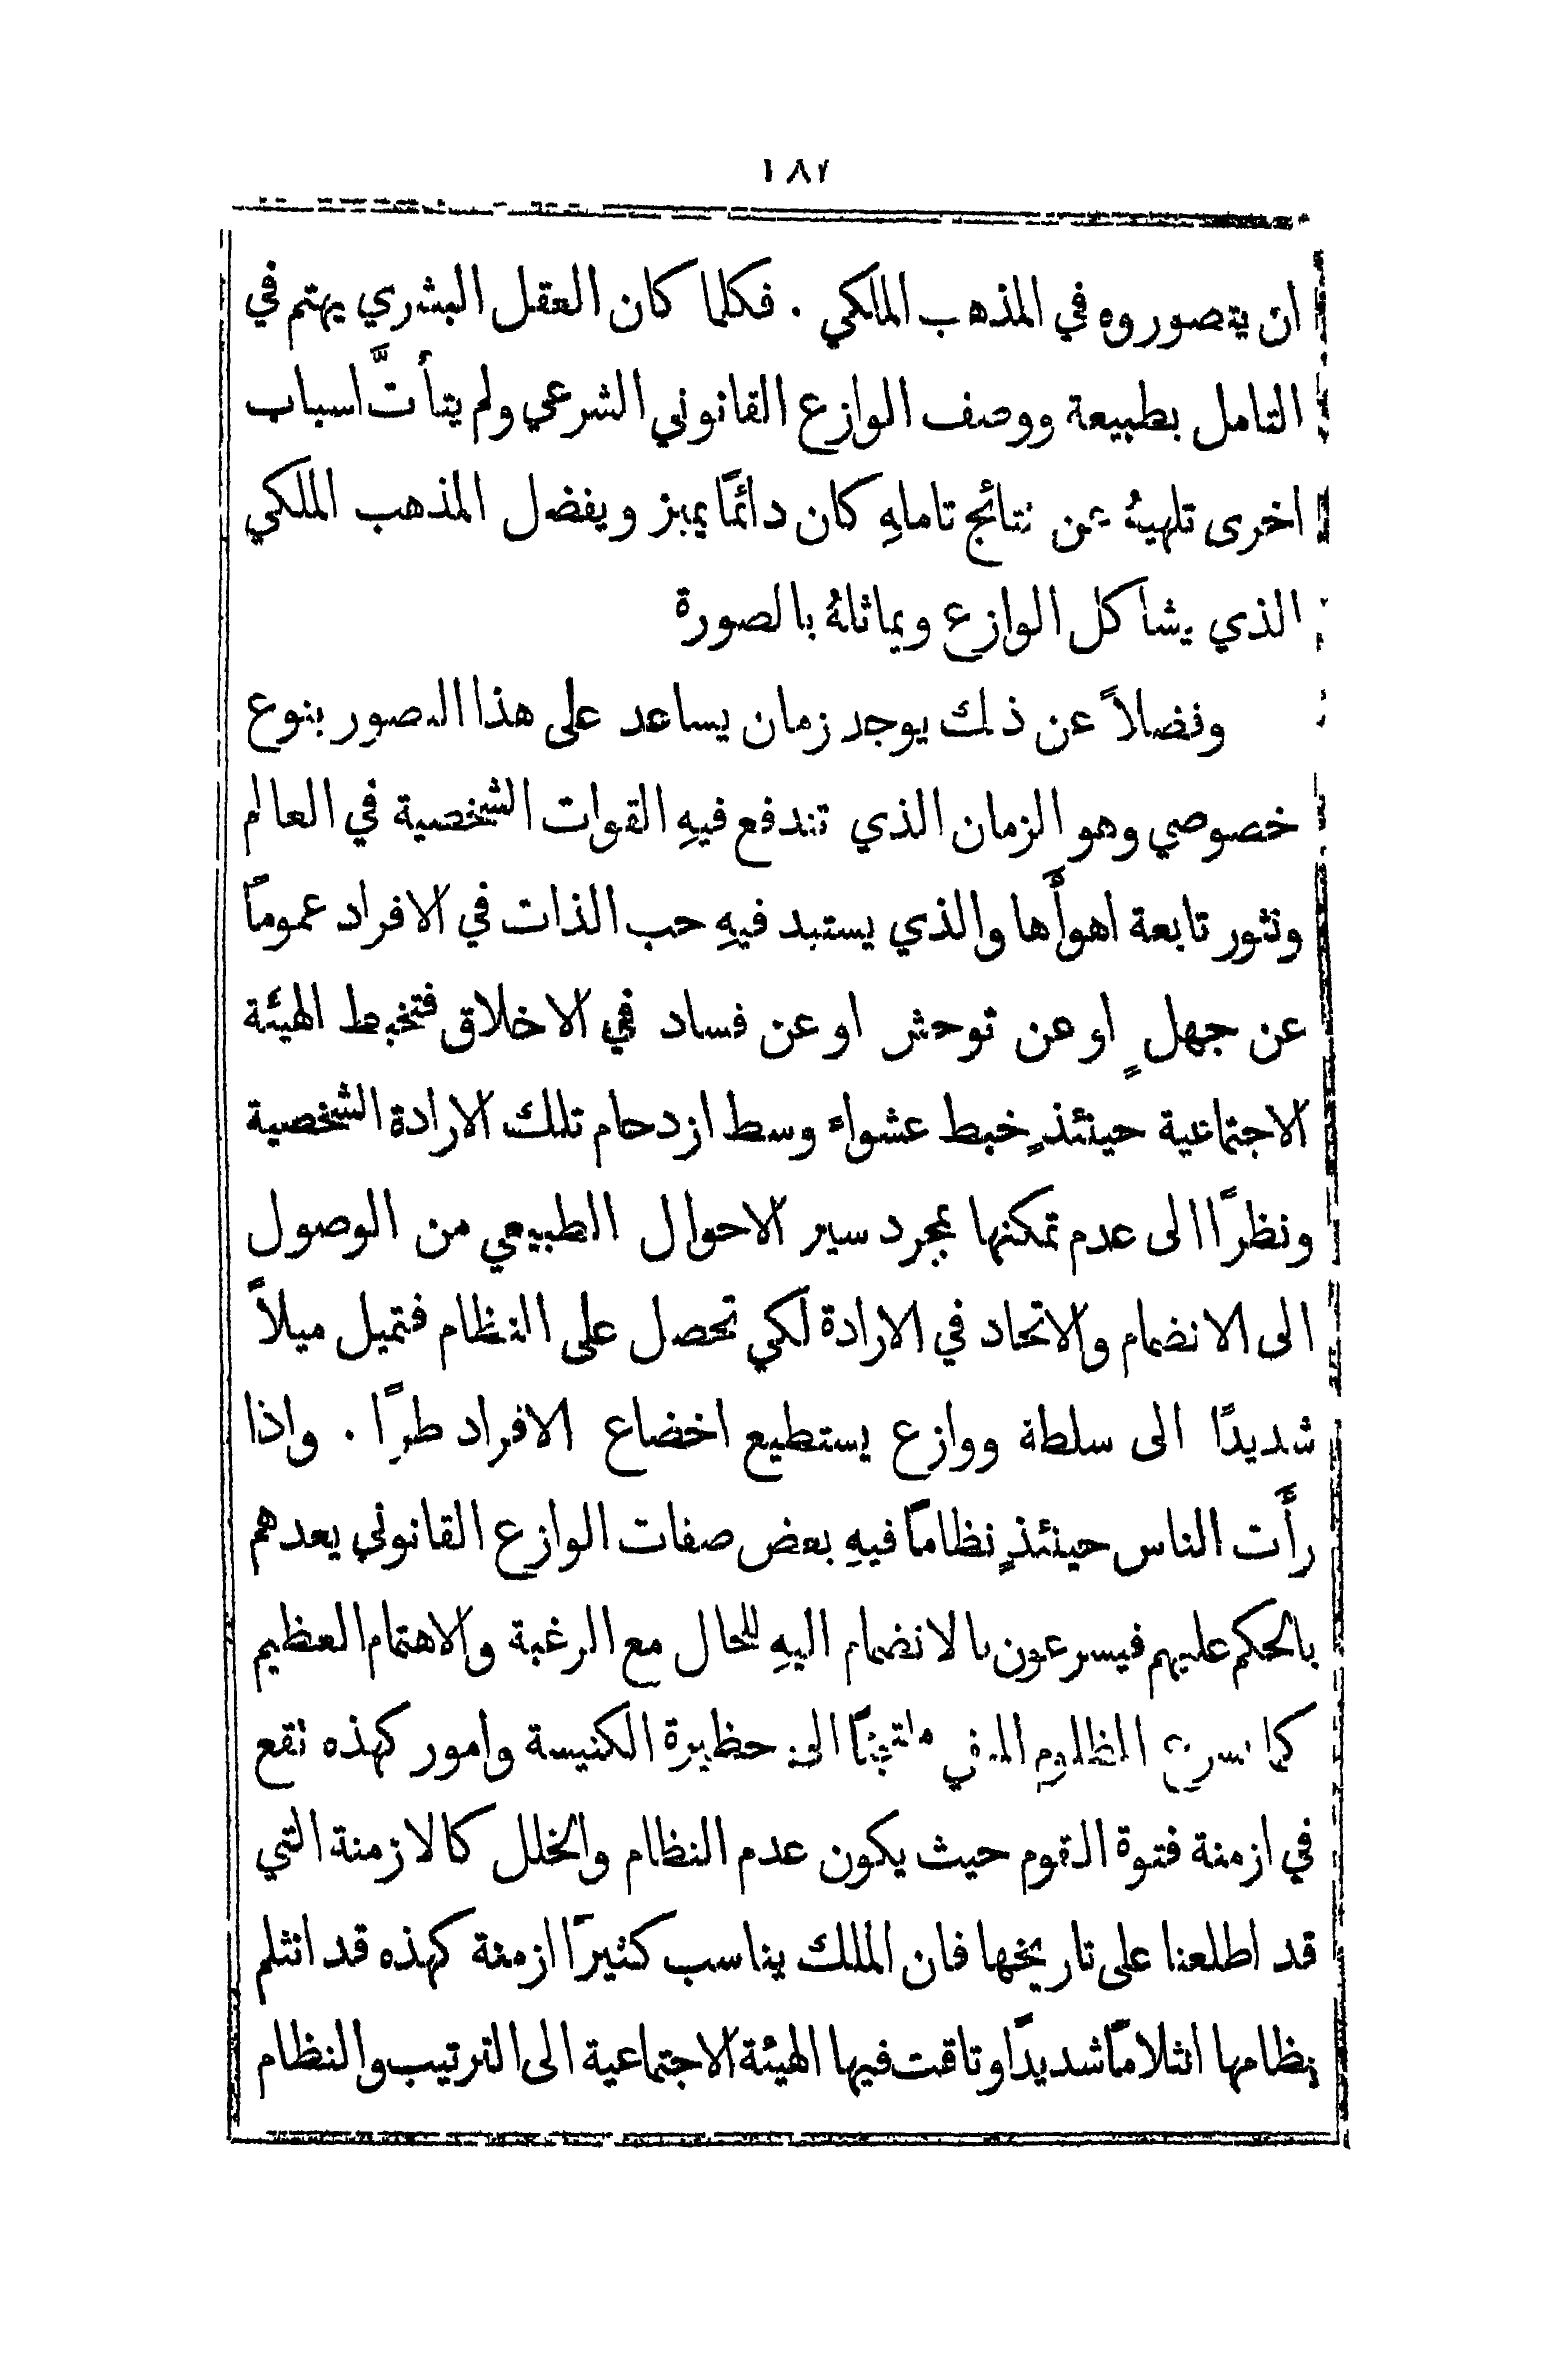 ١٨٢
ان يتصوروه في المذهب المالكي . فكلما كان العقل البشري يهتم في
التامل بطبيعة ووصف الوازع القانوني الشرعي ولم يتأتَّ اسباب
اخرى تلهيهُ عن نتائج تاملهِ كان دائمًا يميز ويفضل المذهب الملكي
الذي يشاكل الوازع ويماثلهُ بالصورة
وفضلاً عن ذلك يوجد زمان يساعد على هذا التصور بنوع
خصوصي وهو الزمان الذي تندفع فيهِ القوات الشخصية في العالم
وتثور تابعة اهوأَها والذي يستبد فيهِ حب الذات في الافراد عمومًا
عن جهلٍ او عن توحش او عن فساد في الاخلاق فتخبط الهيئة
الاجتماعية حينئذٍ خبط عشواء وسط ازدحام تلك الارادة الشخصية
ونظرًا الى عدم تمكنها بمجرد سير الاحوال الطبيعي من الوصول
الى الانضمام والاتحاد في الارادة لكي تحصل على النظام فتميل ميلاً
شديدًا الى سلطة ووازع يستطيع اخضاع الافراد طرًا . واذا
رأَت الناس حينئذٍ نظامًا فيهِ بعض صفات الوازع القانوني يعدهم
بالحكم عليهم فيسرعون بالانضمام اليهِ للحال مع الرغبة والاهتمام العظيم
كما يسرع المظلوم المنفي ملتجئًا الى حظيرة الكنيسة وامور كهذه تقع
في ازمنة فتوة القوم حيث يكون عدم النظام والخلل كالازمنة التي
قد اطلعنا على تاريخها فان الملك يناسب كثيرًا ازمنة كهذه قد انثلم
نظامها انثلامًا شديدًا وتاقت فيها الهيئة الاجتماعية الى الترتيب والنظام